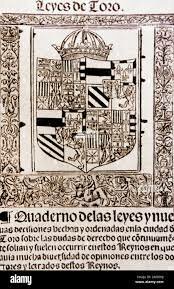 Leyes de Toro.
Quaderno delas leyes y nue
uas decisiones hechas y ordenadas enla ciudad d
Toro sobre las dudas de derecho que continuamen
te solian y suelen ocurrir enestos Reynos en que
auia mucha diuersidad de opiniones entre los do
tores y letrados destos Reynos.
alamy